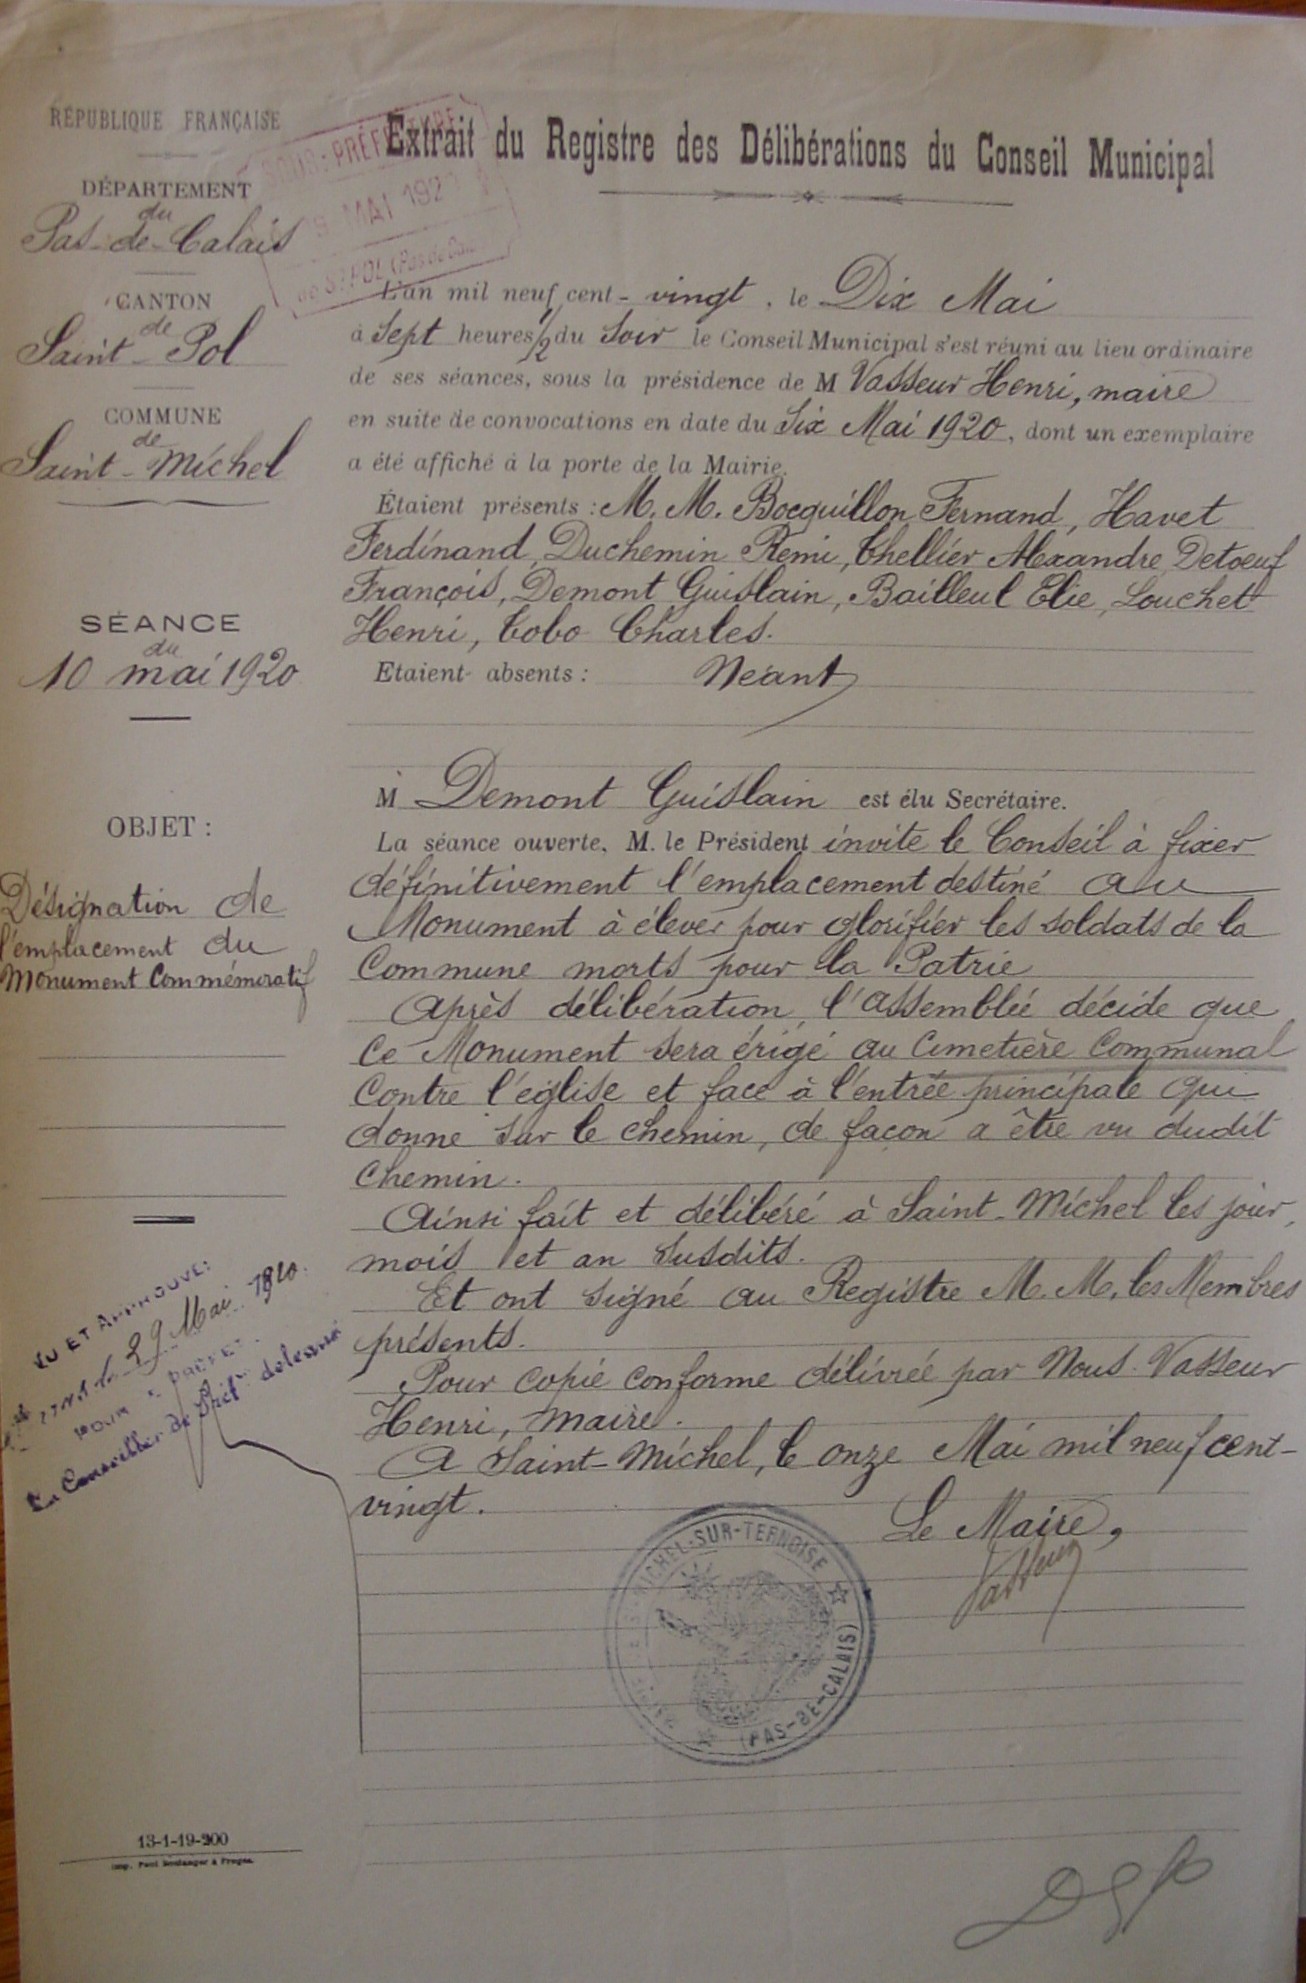 RÉPUBLIQUE FRANÇAISE
DÉPARTEMENT
du
Pas-de-Calais
CANTON
de
Saint-Pol
COMMUNE
de
Saint-Michel
SÉANCE
du
10 mai 1920
OBJET :
Désignation de
l'emplacement du
Monument Commémoratif
VU ET APPROUVÉ:
29 Mai 1920.
POUR
Le Conseiller de Préf délégué
13-1-19-200
Imp. Paul Boulanger à Fruges.
SOUS-PRÉFECTURE
MAI 192
de St POL (Pas de Ca
Extrait du Registre des Délibérations du Conseil Municipal
L'an mil neuf cent-vingt, le Dix Mai
à Sept heures 1/2 du Soir le Conseil Municipal s'est réuni au lieu ordinaire
de ses séances, sous la présidence de M Vasseur Henri, maire
en suite de convocations en date du Six Mai 1920, dont un exemplaire
a été affiché à la porte de la Mairie.
Étaient présents : M. M. Bocquillon Fernand, Havet
Ferdinand, Duchemin Remi, Thellier Alexandre, Detoeuf
François, Demont Guislain, Bailleul Elie, Louchet
Henri, Cobo Charles.
Etaient absents : Néant
M Demont Guislain est élu Secrétaire.
La séance ouverte, M. le Président invite le Conseil à fixer
définitivement l'emplacement destiné au
Monument à élever pour glorifier les soldats de la
Commune morts pour la Patrie
Après délibération, l'assemblée décide que
ce Monument sera érigé au Cimetière Communal
contre l'église et face à l'entrée principale qui
donne sur le chemin, de façon a être vu dudit
chemin.
Ainsi fait et délibéré à Saint-Michel les jour,
mois et an susdits.
Et ont signé au Registre M. M. les Membres
présents.
Pour copie conforme délivrée par Nous Vasseur
Henri, maire.
A Saint-Michel, le onze Mai mil neuf cent-
vingt.
Le Maire,
Vasseur
MAIRIE DE St-MICHEL-SUR-TERNOISE
(PAS-DE-CALAIS)